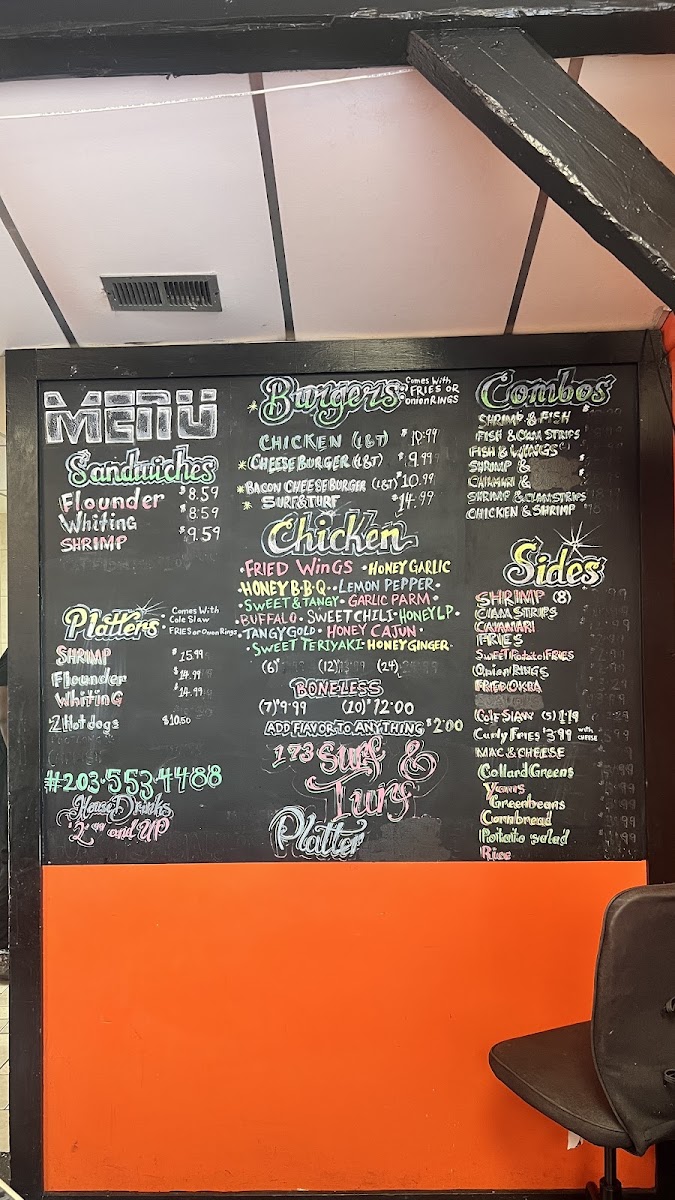 MENU
Sandwiches
Flounder $8.59
Whiting $8.59
SHRIMP $9.59
Platters
Comes With
Cole Slaw
FRIES or Onion Rings
SHRIMP $15.99
Flounder $14.99
WHITING $14.99
2 Hotdogs $10.50
#203-553-4488
House Drinks
$2.00 and UP
* Burgers:
Comes With
FRIES OR
Onion RINGS
CHICKEN (L&T) $10.99
* CHEESE BURGER (L&T) $9.99
* BACON CHEESE BURGER (L&T) $10.99
* SURF & TURF $14.99
Chicken
• FRIED WINGS • HONEY GARLIC
• HONEY B•B•Q • LEMON PEPPER •
• SWEET & TANGY • GARLIC PARM •
• BUFFALO • SWEET CHILI • HONEY LP •
• TANGY GOLD • HONEY CAJUN •
• SWEET TERIYAKI • HONEY GINGER •
(6) (12) (24)
BONELESS
(7) $9.99 (10) $12.00
ADD FLAVOR TO ANYTHING $2.00
173 Surf &
Turf
Platter
Combos
SHRIMP & FISH
FISH & CLAM STRIPS
FISH & WINGS
SHRIMP &
CALAMARI &
SHRIMP & CLAM STRIPS
CHICKEN & SHRIMP
Sides
SHRIMP (8)
CLAM STRIPS
CALAMARI
FRIES
Sweet Potato FRIES
Onion RINGS
FRIED OKRA
Cole SLAW (S) 1.19
Curly FRIES $3.99 with CHEESE
MAC & CHEESE
Collard Greens
Yams
Greenbeans
Cornbread
Potato salad
Rice